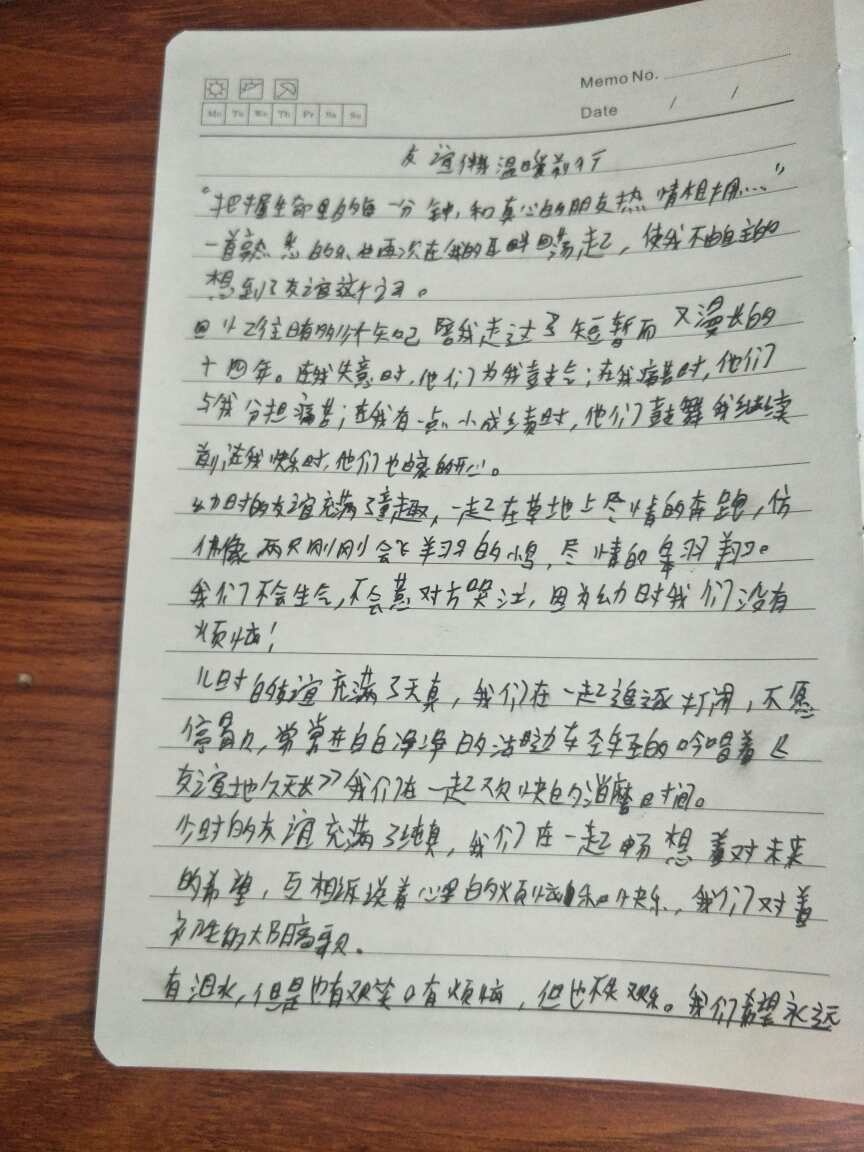 Memo No.
Mo Tu We Th Fr Sa Su
Date / /
友谊伴温暖前行
"把握生命里的每一分钟,和真心的朋友热情相拥……"
一首熟悉的乐曲再次在我的耳畔回荡起,使我不由自主的
想到了友谊这个词。
回忆往日有多少个知己陪我走过了短暂而又漫长的
十四年。在我失意时,他们为我鼓气;在我痛苦时,他们
与我分担痛苦;在我有一点小成绩时,他们鼓舞我继续
前;在我快乐时,他们也的开心。
幼时的友谊充满了童趣,一起在草地上尽情的奔跑,仿
佛像两只刚刚会飞翔的小鸟,尽情的翱翔。
我们不会生气,不会惹对方哭泣,因为幼时我们没有
烦恼!
儿时的友谊充满了天真,我们在一起追逐打闹,不愿
停息,常常在白白净净的活动车的吟唱着《
友谊地久天长》我们在一起欢快的消磨时间。
少时的友谊充满了纯真,我们在一起畅想着对未来
的希望,互相诉说着心里的烦恼和快乐,我们对着
的大高歌。
有泪水,但是也有欢笑。有烦恼,但也不失欢乐。我们希望永远